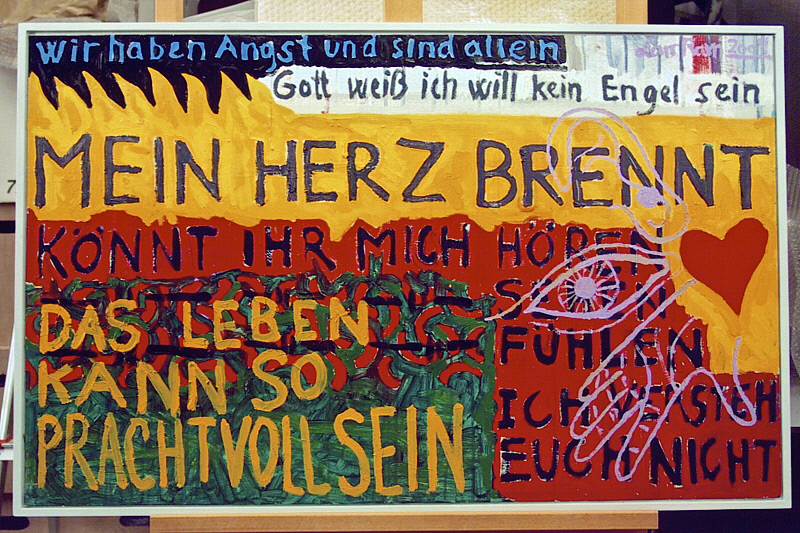 wir haben Angst und sind allein
Gott weiß ich will kein Engel sein
MEIN HERZ BRENNT
KÖNNT IHR MICH HÖREN
SEHEN
FÜHLEN
ICH VERSTEH
EUCH NICHT
DAS LEBEN
KANN SO
PRACHTVOLL SEIN
7